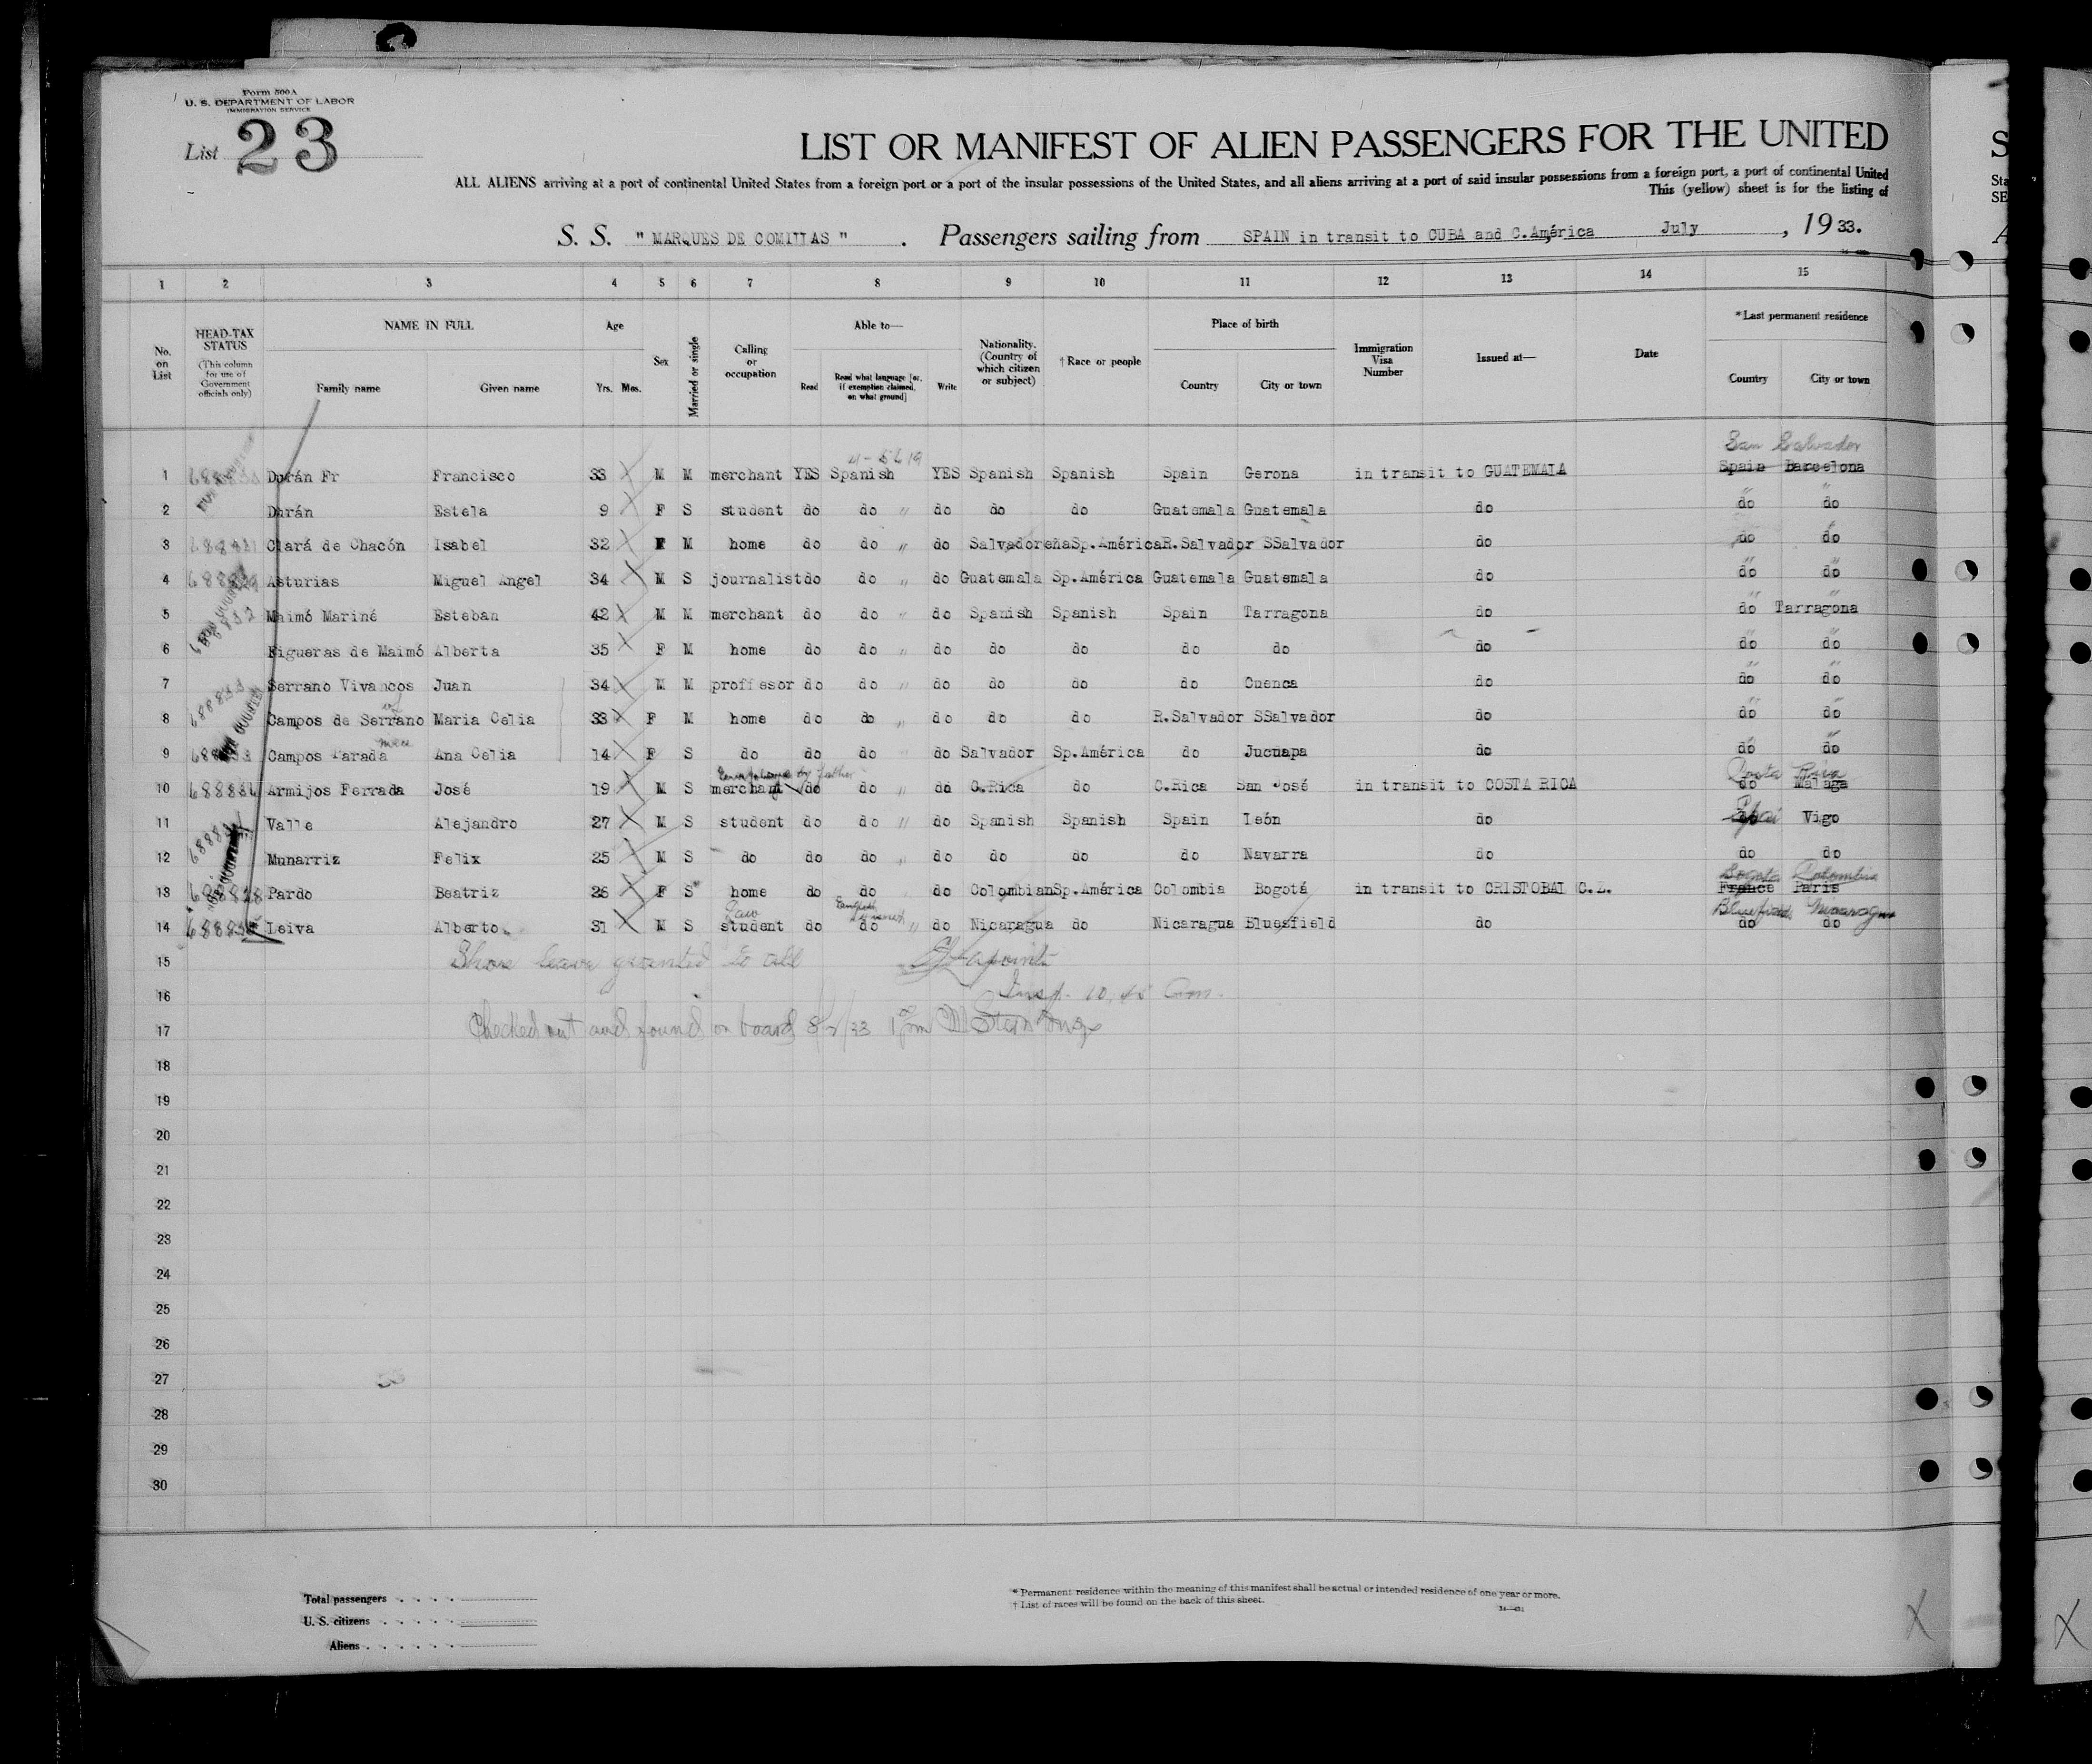 Form 500A
U. S. DEPARTMENT OF LABOR
IMMIGRATION SERVICE
List 23
LIST OR MANIFEST OF ALIEN PASSENGERS FOR THE UNITED
ALL ALIENS arriving at a port of continental United States from a foreign port or a port of the insular possessions of the United States, and all aliens arriving at a port of said insular possessions from a foreign port, a port of continental United
This (yellow) sheet is for the listing of
S. S. " MARQUES DE COMILLAS " . Passengers sailing from SPAIN in transit to CUBA and C.América July , 1933.
1 2 3 4 5 6 7 8 9 10 11 12 13 14 15
No. on List
HEAD-TAX STATUS
(This column for use of Government officials only)
NAME IN FULL
Family name Given name
Age
Yrs. Mos.
Sex
Married or single
Calling or occupation
Able to—
Read
Read what language [or, if exemption claimed, on what ground]
Write
Nationality. (Country of which citizen or subject)
† Race or people
Place of birth
Country City or town
Immigration Visa Number
Issued at—
Date
*Last permanent residence
Country City or town
San Salvador
1 Durán Fr Francisco 33 M M merchant YES Spanish YES Spanish Spanish Spain Gerona in transit to GUATEMALA Spain Barcelona
2 Durán Estela 9 F S student do do " do do do Guatemala Guatemala do do do
3 Clará de Chacón Isabel 32 F M home do do " do Salvadoreña Sp.América R.Salvador SSalvador do do do
4 Asturias Miguel Angel 34 M S journalist do do " do Guatemala Sp.América Guatemala Guatemala do do do
5 Maimó Mariné Esteban 42 M M merchant do do " do Spanish Spanish Spain Tarragona do do Tarragona
6 Figueras de Maimó Alberta 35 F M home do do " do do do do do do do do
7 Serrano Vivancos Juan 34 M M proffesor do do " do do do do Cuenca do do do
8 Campos de Serrano Maria Celia 33 F M home do do " do do do R.Salvador SSalvador do do do
9 Campos Parada Ana Celia 14 F S do do do " do Salvador Sp.América do Jucuapa do do do
Costa Rica
10 688836 Armijos Ferrada José 19 M S merchant do do " do C.Rica do C.Rica San José in transit to COSTA RICA do Malaga
11 Valle Alejandro 27 M S student do do " do Spanish Spanish Spain León do Spai Vigo
12 Munarriz Felix 25 M S do do do " do do do do Navarra do do do
Bogota Colombia
13 688828 Pardo Beatriz 26 F S home do do do Colombian Sp.América Colombia Bogotá in transit to CRISTOBAL C.Z. France Paris
Law Bluefields Nicaragua
14 Leiva Alberto 31 M S student do do " do Nicaragua do Nicaragua Bluesfield do do do
15 Shore leave granted to all
16 Insp. 10.45 am.
17 Checked out and found on board 8/2/33 1 pm
18
19
20
21
22
23
24
25
26
27
28
29
30
Total passengers
U. S. citizens
Aliens
* Permanent residence within the meaning of this manifest shall be actual or intended residence of one year or more.
† List of races will be found on the back of this sheet.